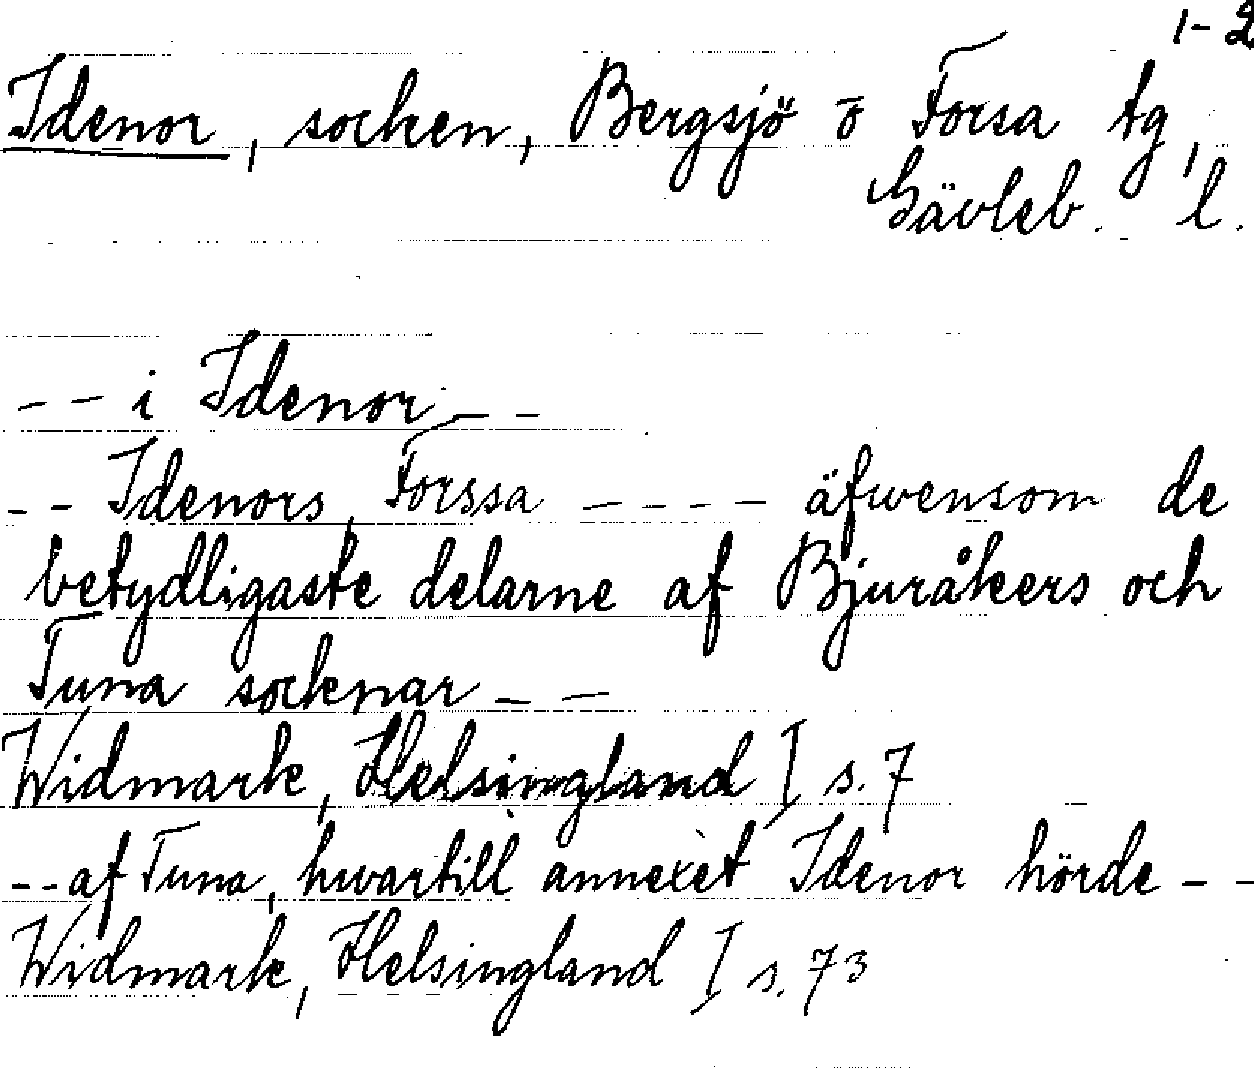 1-2
Idenor, socken, Bergsjö o Forsa tg,
Gävleb. l.
-- i Idenor --
-- Idenors, Forssa ---- äfwensom de
betydligaste delarne af Bjuråkers och
Tuna socknar --
Widmark, Helsingland I s. 7
-- af Tuna, hwartill annexet Idenor hörde --
Widmark, Helsingland I s. 73